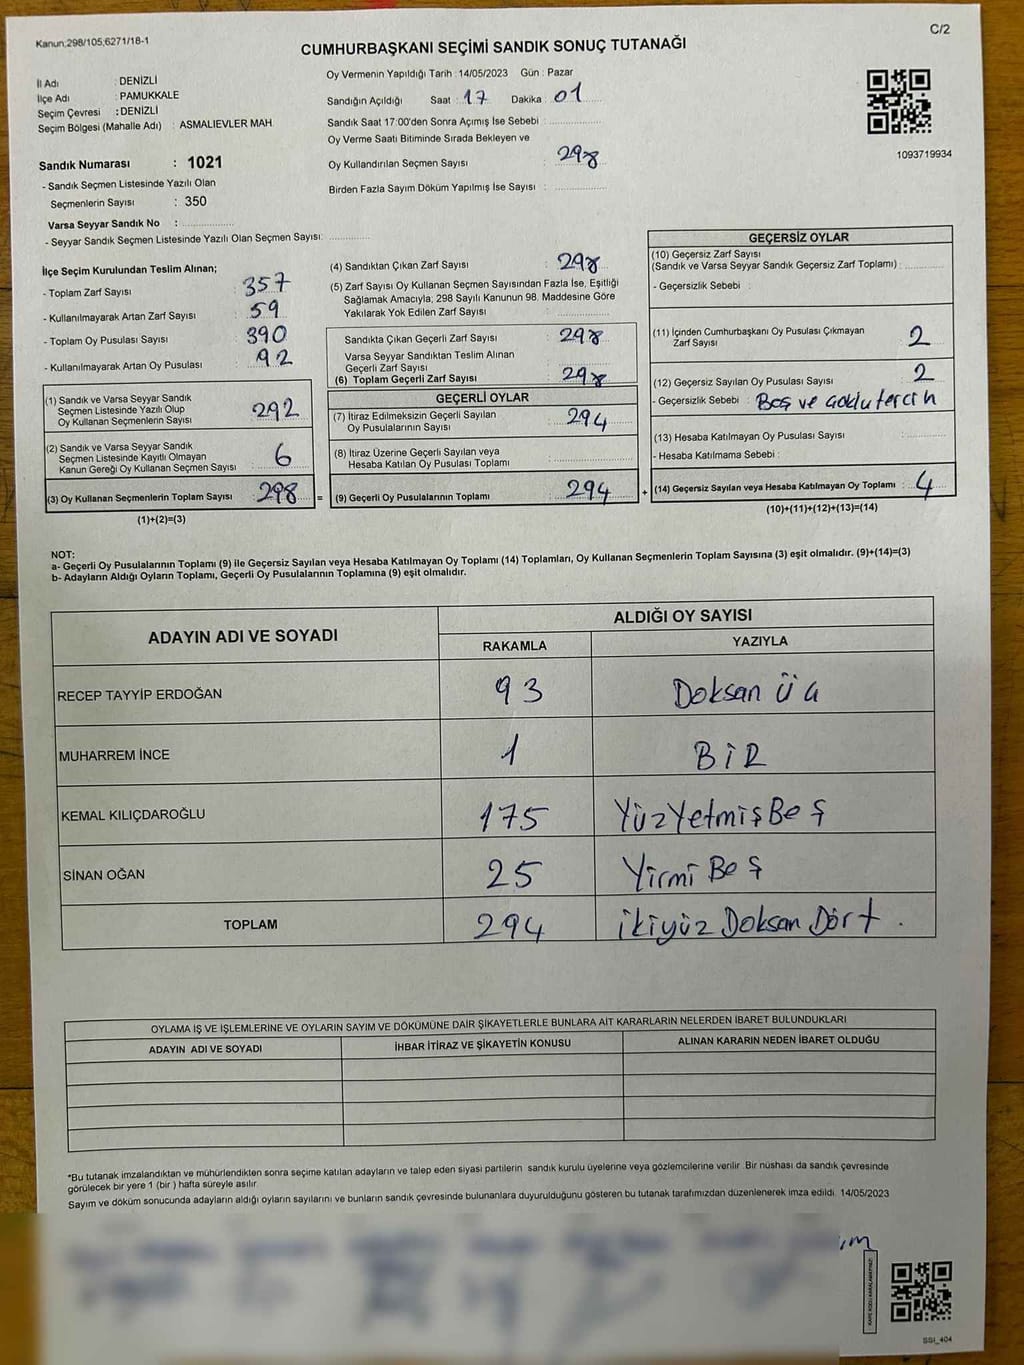 Kanun;298/105,6271/18-1
C/2
CUMHURBAŞKANI SEÇİMİ SANDIK SONUÇ TUTANAĞI
İl Adı : DENİZLİ
İlçe Adı : PAMUKKALE
Seçim Çevresi : DENİZLİ
Seçim Bölgesi (Mahalle Adı) : ASMALIEVLER MAH.
Oy Vermenin Yapıldığı Tarih : 14/05/2023 Gün : Pazar
Sandığın Açıldığı Saat : 17 Dakika : 01
Sandık Saat 17:00'den Sonra Açımış İse Sebebi :
Oy Verme Saati Bitiminde Sırada Bekleyen ve
Oy Kullandırılan Seçmen Sayısı : 298
Birden Fazla Sayım Döküm Yapılmış İse Sayısı :
1093719934
Sandık Numarası : 1021
- Sandık Seçmen Listesinde Yazılı Olan
Seçmenlerin Sayısı : 350
Varsa Seyyar Sandık No :
- Seyyar Sandık Seçmen Listesinde Yazılı Olan Seçmen Sayısı:
İlçe Seçim Kurulundan Teslim Alınan;
- Toplam Zarf Sayısı : 357
- Kullanılmayarak Artan Zarf Sayısı : 59
- Toplam Oy Pusulası Sayısı : 390
- Kullanılmayarak Artan Oy Pusulası : 92
(1) Sandık ve Varsa Seyyar Sandık
Seçmen Listesinde Yazılı Olup
Oy Kullanan Seçmenlerin Sayısı : 292
(2) Sandık ve Varsa Seyyar Sandık
Seçmen Listesinde Kayıtlı Olmayan
Kanun Gereği Oy Kullanan Seçmen Sayısı : 6
(3) Oy Kullanan Seçmenlerin Toplam Sayısı : 298 =
(1)+(2)=(3)
(4) Sandıktan Çıkan Zarf Sayısı : 298
(5) Zarf Sayısı Oy Kullanan Seçmen Sayısından Fazla İse, Eşitliği
Sağlamak Amacıyla; 298 Sayılı Kanunun 98. Maddesine Göre
Yakılarak Yok Edilen Zarf Sayısı :
Sandıkta Çıkan Geçerli Zarf Sayısı : 298
Varsa Seyyar Sandıktan Teslim Alınan
Geçerli Zarf Sayısı :
(6) Toplam Geçerli Zarf Sayısı : 298
GEÇERLİ OYLAR
(7) İtiraz Edilmeksizin Geçerli Sayılan
Oy Pusulalarının Sayısı : 294
(8) İtiraz Üzerine Geçerli Sayılan veya
Hesaba Katılan Oy Pusulası Toplamı :
(9) Geçerli Oy Pusulalarının Toplamı : 294 +
GEÇERSİZ OYLAR
(10) Geçersiz Zarf Sayısı
(Sandık ve Varsa Seyyar Sandık Geçersiz Zarf Toplamı) :
- Geçersizlik Sebebi :
(11) İçinden Cumhurbaşkanı Oy Pusulası Çıkmayan
Zarf Sayısı : 2
(12) Geçersiz Sayılan Oy Pusulası Sayısı : 2
- Geçersizlik Sebebi : Boş ve çoklu tercih
(13) Hesaba Katılmayan Oy Pusulası Sayısı :
- Hesaba Katılmama Sebebi :
(14) Geçersiz Sayılan veya Hesaba Katılmayan Oy Toplamı : 4
(10)+(11)+(12)+(13)=(14)
NOT:
a- Geçerli Oy Pusulalarının Toplamı (9) ile Geçersiz Sayılan veya Hesaba Katılmayan Oy Toplamı (14) Toplamları, Oy Kullanan Seçmenlerin Toplam Sayısına (3) eşit olmalıdır. (9)+(14)=(3)
b- Adayların Aldığı Oyların Toplamı, Geçerli Oy Pusulalarının Toplamına (9) eşit olmalıdır.
ADAYIN ADI VE SOYADI ALDIĞI OY SAYISI
RAKAMLA YAZIYLA
RECEP TAYYİP ERDOĞAN 93 Doksan Üç
MUHARREM İNCE 1 BİR
KEMAL KILIÇDAROĞLU 175 YüzYetmişBeş
SİNAN OĞAN 25 Yirmi Beş
TOPLAM 294 ikiyüz Doksan Dört.
OYLAMA İŞ VE İŞLEMLERİNE VE OYLARIN SAYIM VE DÖKÜMÜNE DAİR ŞİKAYETLERLE BUNLARA AİT KARARLARIN NELERDEN İBARET BULUNDUKLARI
ADAYIN ADI VE SOYADI İHBAR İTİRAZ VE ŞİKAYETİN KONUSU ALINAN KARARIN NEDEN İBARET OLDUĞU
*Bu tutanak imzalandıktan ve mühürlendikten sonra seçime katılan adayların ve talep eden siyasi partilerin sandık kurulu üyelerine veya gözlemcilerine verilir .Bir nüshası da sandık çevresinde
görülecek bir yere 1 (bir ) hafta süreyle asılır.
Sayım ve döküm sonucunda adayların aldığı oyların sayılarını ve bunların sandık çevresinde bulunanlara duyurulduğunu gösteren bu tutanak tarafımızdan düzenlenerek imza edildi. 14/05/2023
SSI_404